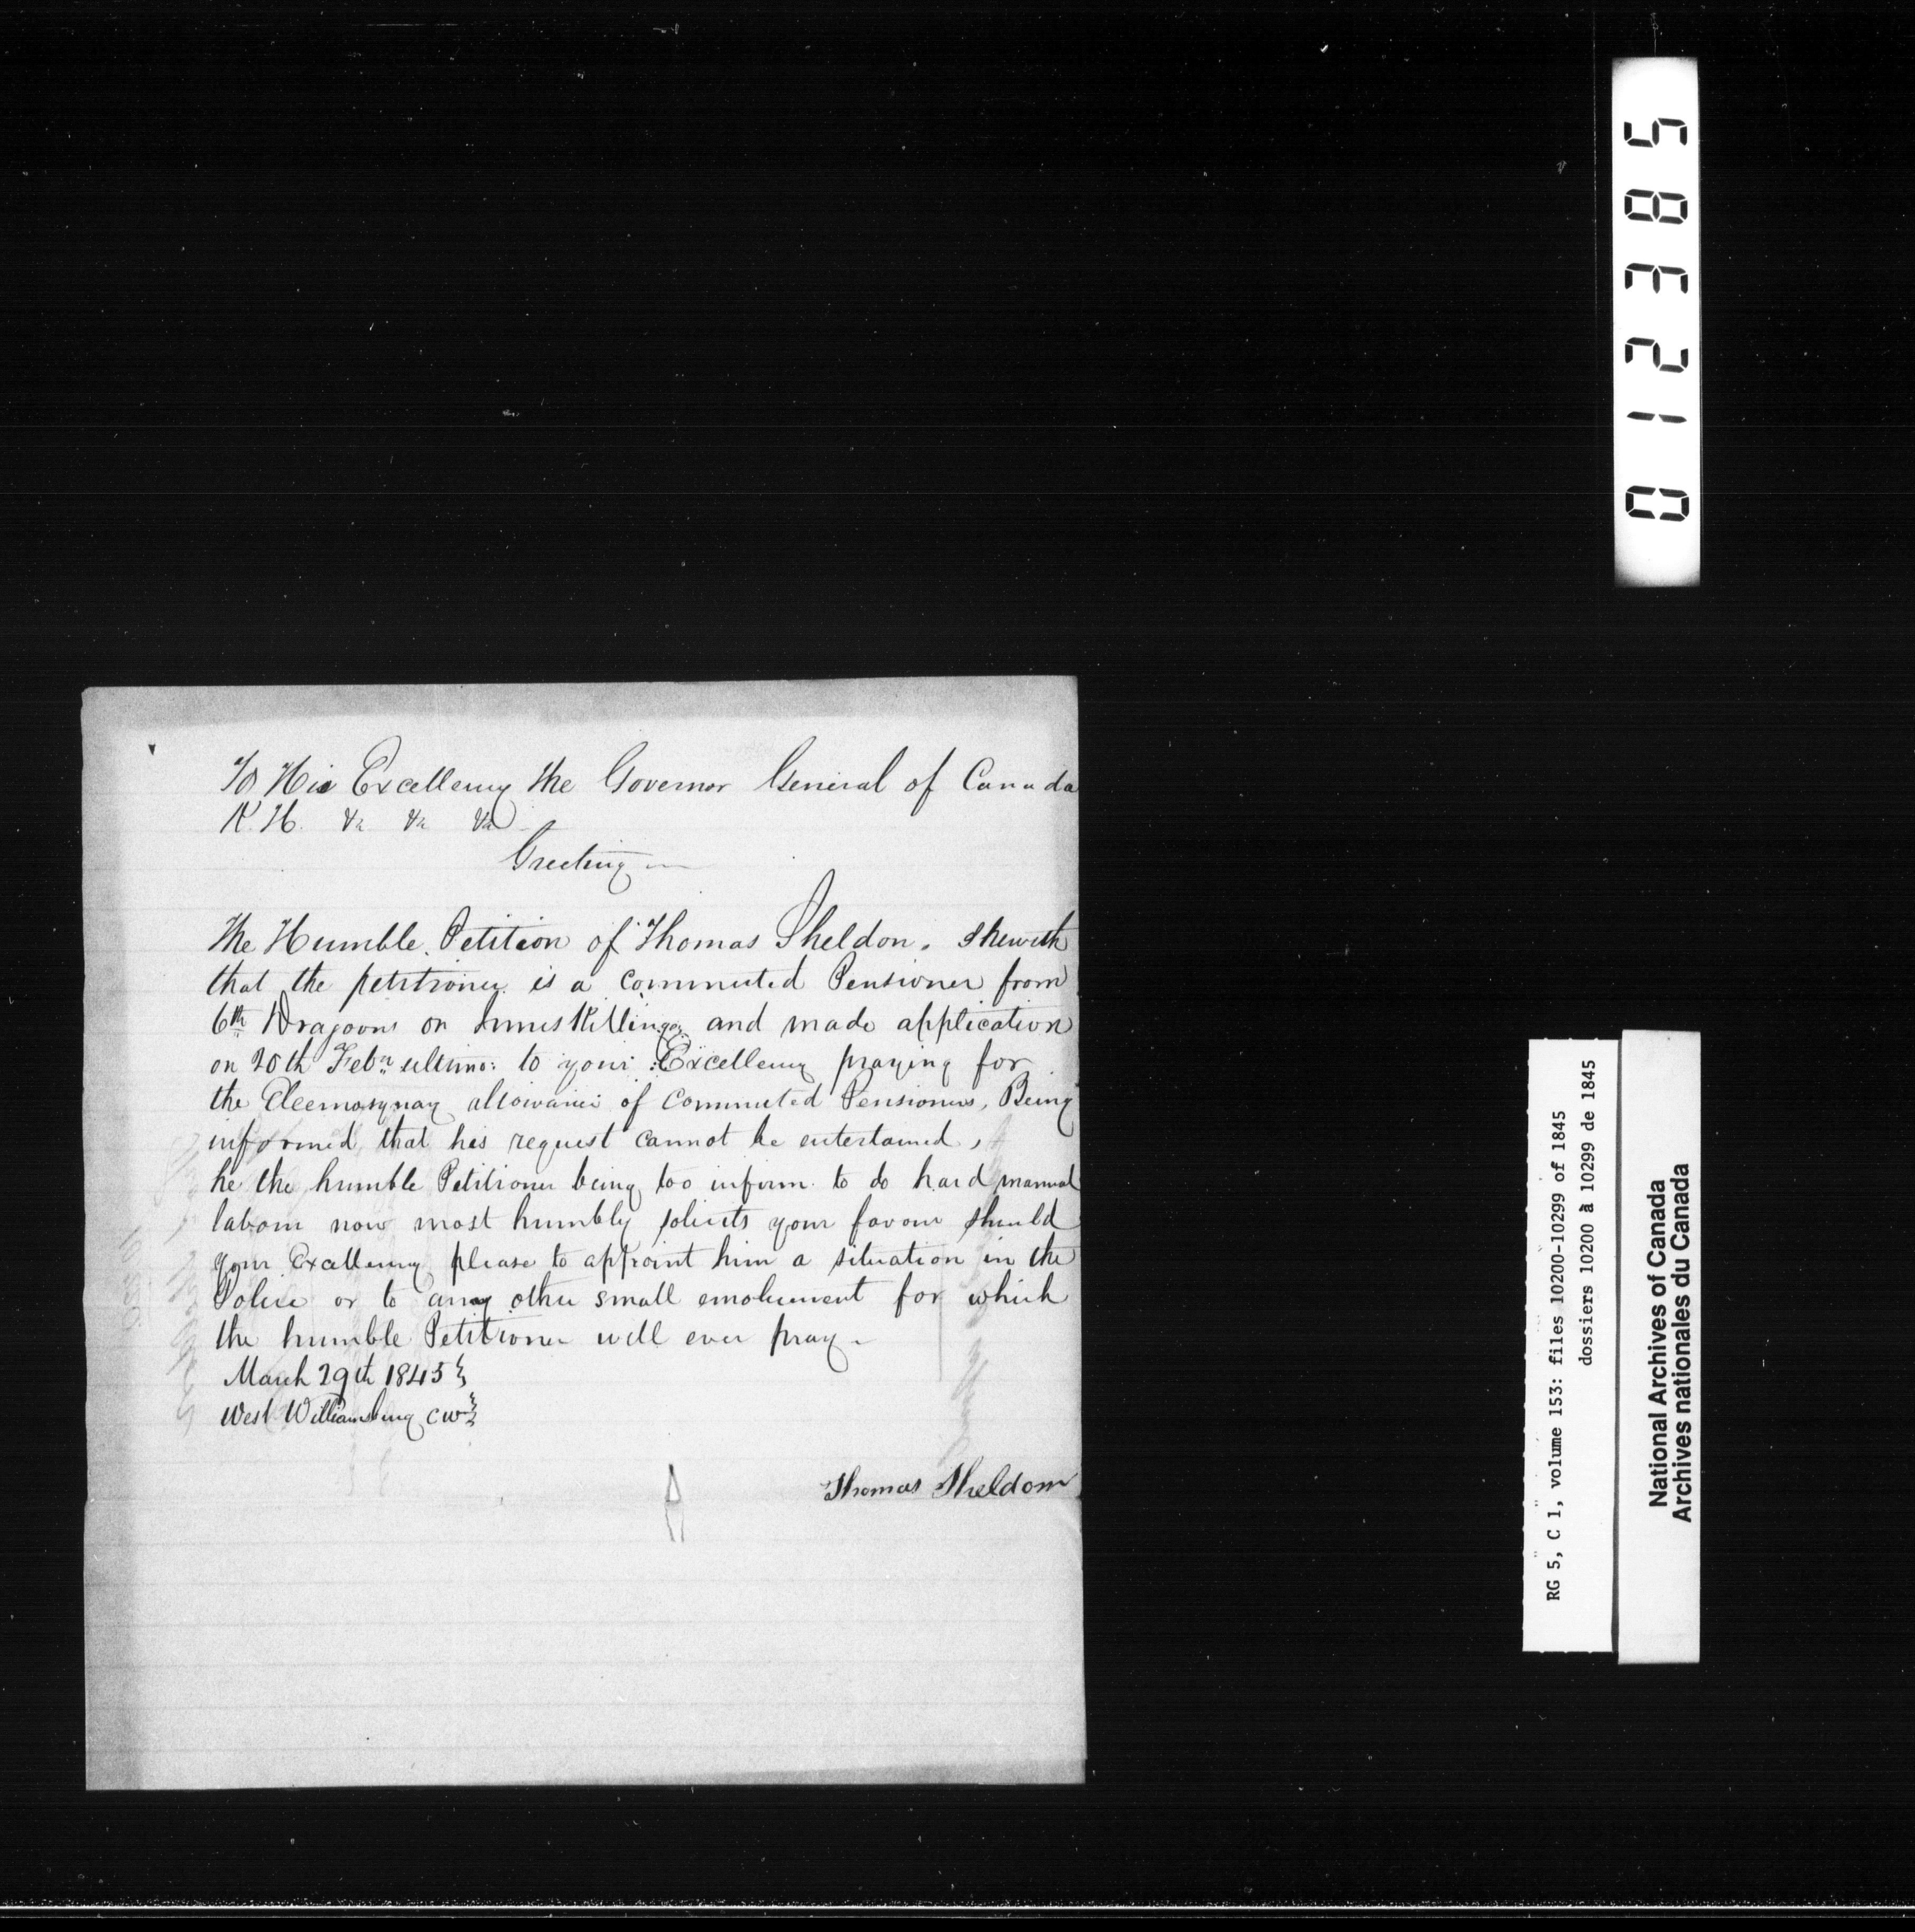 To His Excellency the Governor General of Canada
K. H. &c &c &c
Greeting
The Humble Petition of Thomas Sheldon. Sheweth
that the petitioner is a Commuted Pensioner from
6th Dragoons or Inniskillings and made application
on 20th Feby ultimo: to your Excellency praying for
the Eleemosynay allowance of Commuted Pensioners, Being
informed that his request cannot be entertained,
he the humble Petitioner being too infirm to do hard manual
labour now most humbly solicits your favour should
your Excellency please to appoint him a situation in the
Police or to any other small emolument for which
the humble Petitioner will ever pray -
March 29th 1845
West Williamsburg CW
Thomas Sheldon
012385
RG 5, C 1, volume 153: files 10200-10299 of 1845
dossiers 10200 à 10299 de 1845
National Archives of Canada
Archives nationales du Canada